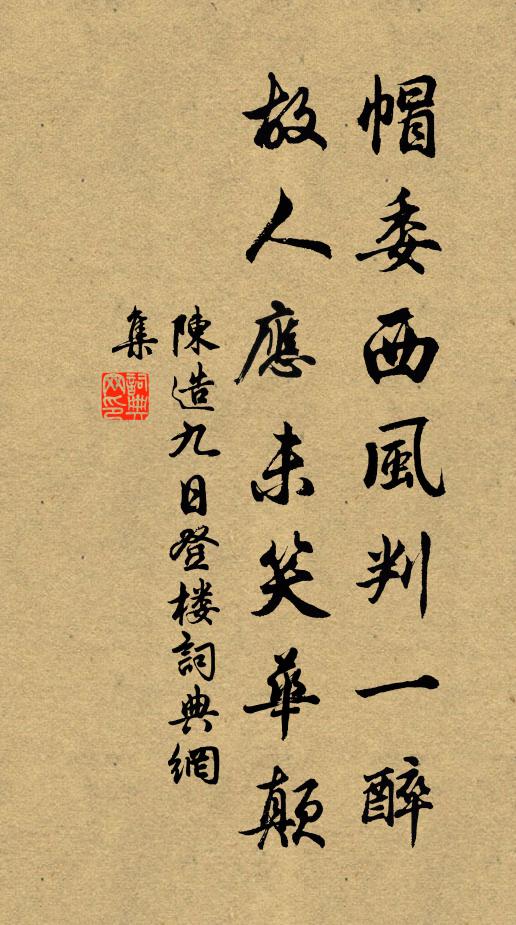 帽委西風判一醉
故人應未笑華顛
陳造九日登楼詞典網
集
詞典网印